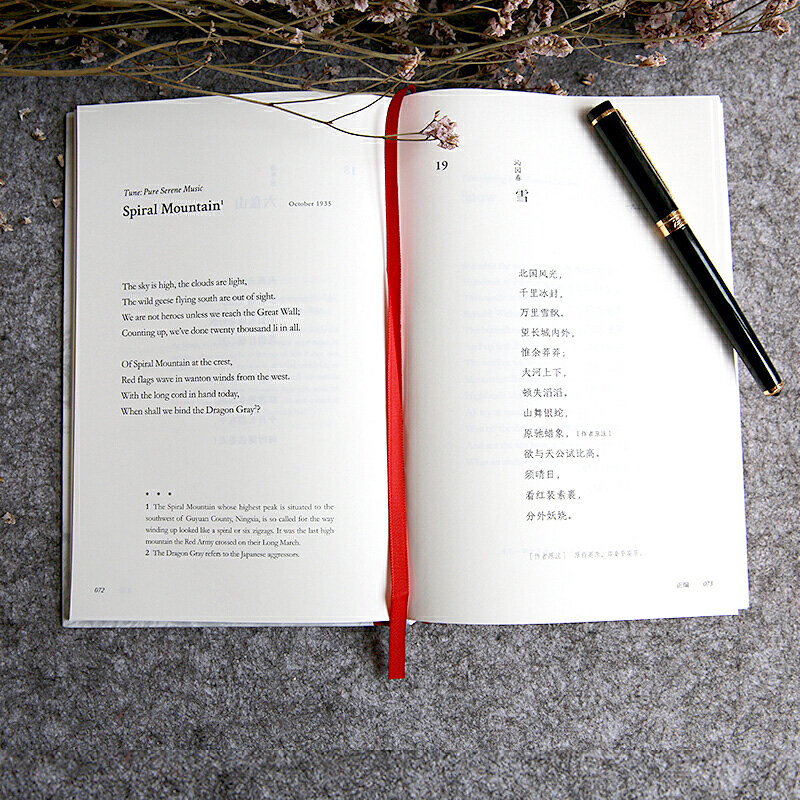 Tune: Pure Serene Music
Spiral Mountain¹
October 1935
The sky is high, the clouds are light,
The wild geese flying south are out of sight.
We are not heroes unless we reach the Great Wall;
Counting up, we've done twenty thousand li in all.
Of Spiral Mountain at the crest,
Red flags wave in wanton winds from the west.
With the long cord in hand today,
When shall we bind the Dragon Gray²?
• • •
1 The Spiral Mountain whose highest peak is situated to the
southwest of Guyuan County, Ningxia, is so called for the way
winding up looked like a spiral or six zigzags. It was the last high
mountain the Red Army crossed on their Long March.
2 The Dragon Gray refers to the Japanese aggressors.
072
19
沁园春
雪
北国风光，
千里冰封，
万里雪飘。
望长城内外，
惟余莽莽；
大河上下，
顿失滔滔。
山舞银蛇，
原驰蜡象，［作者原注］
欲与天公试比高。
须晴日，
看红装素裹，
分外妖娆。
［作者原注］ 原指高原，即秦晋高原。
正编 073